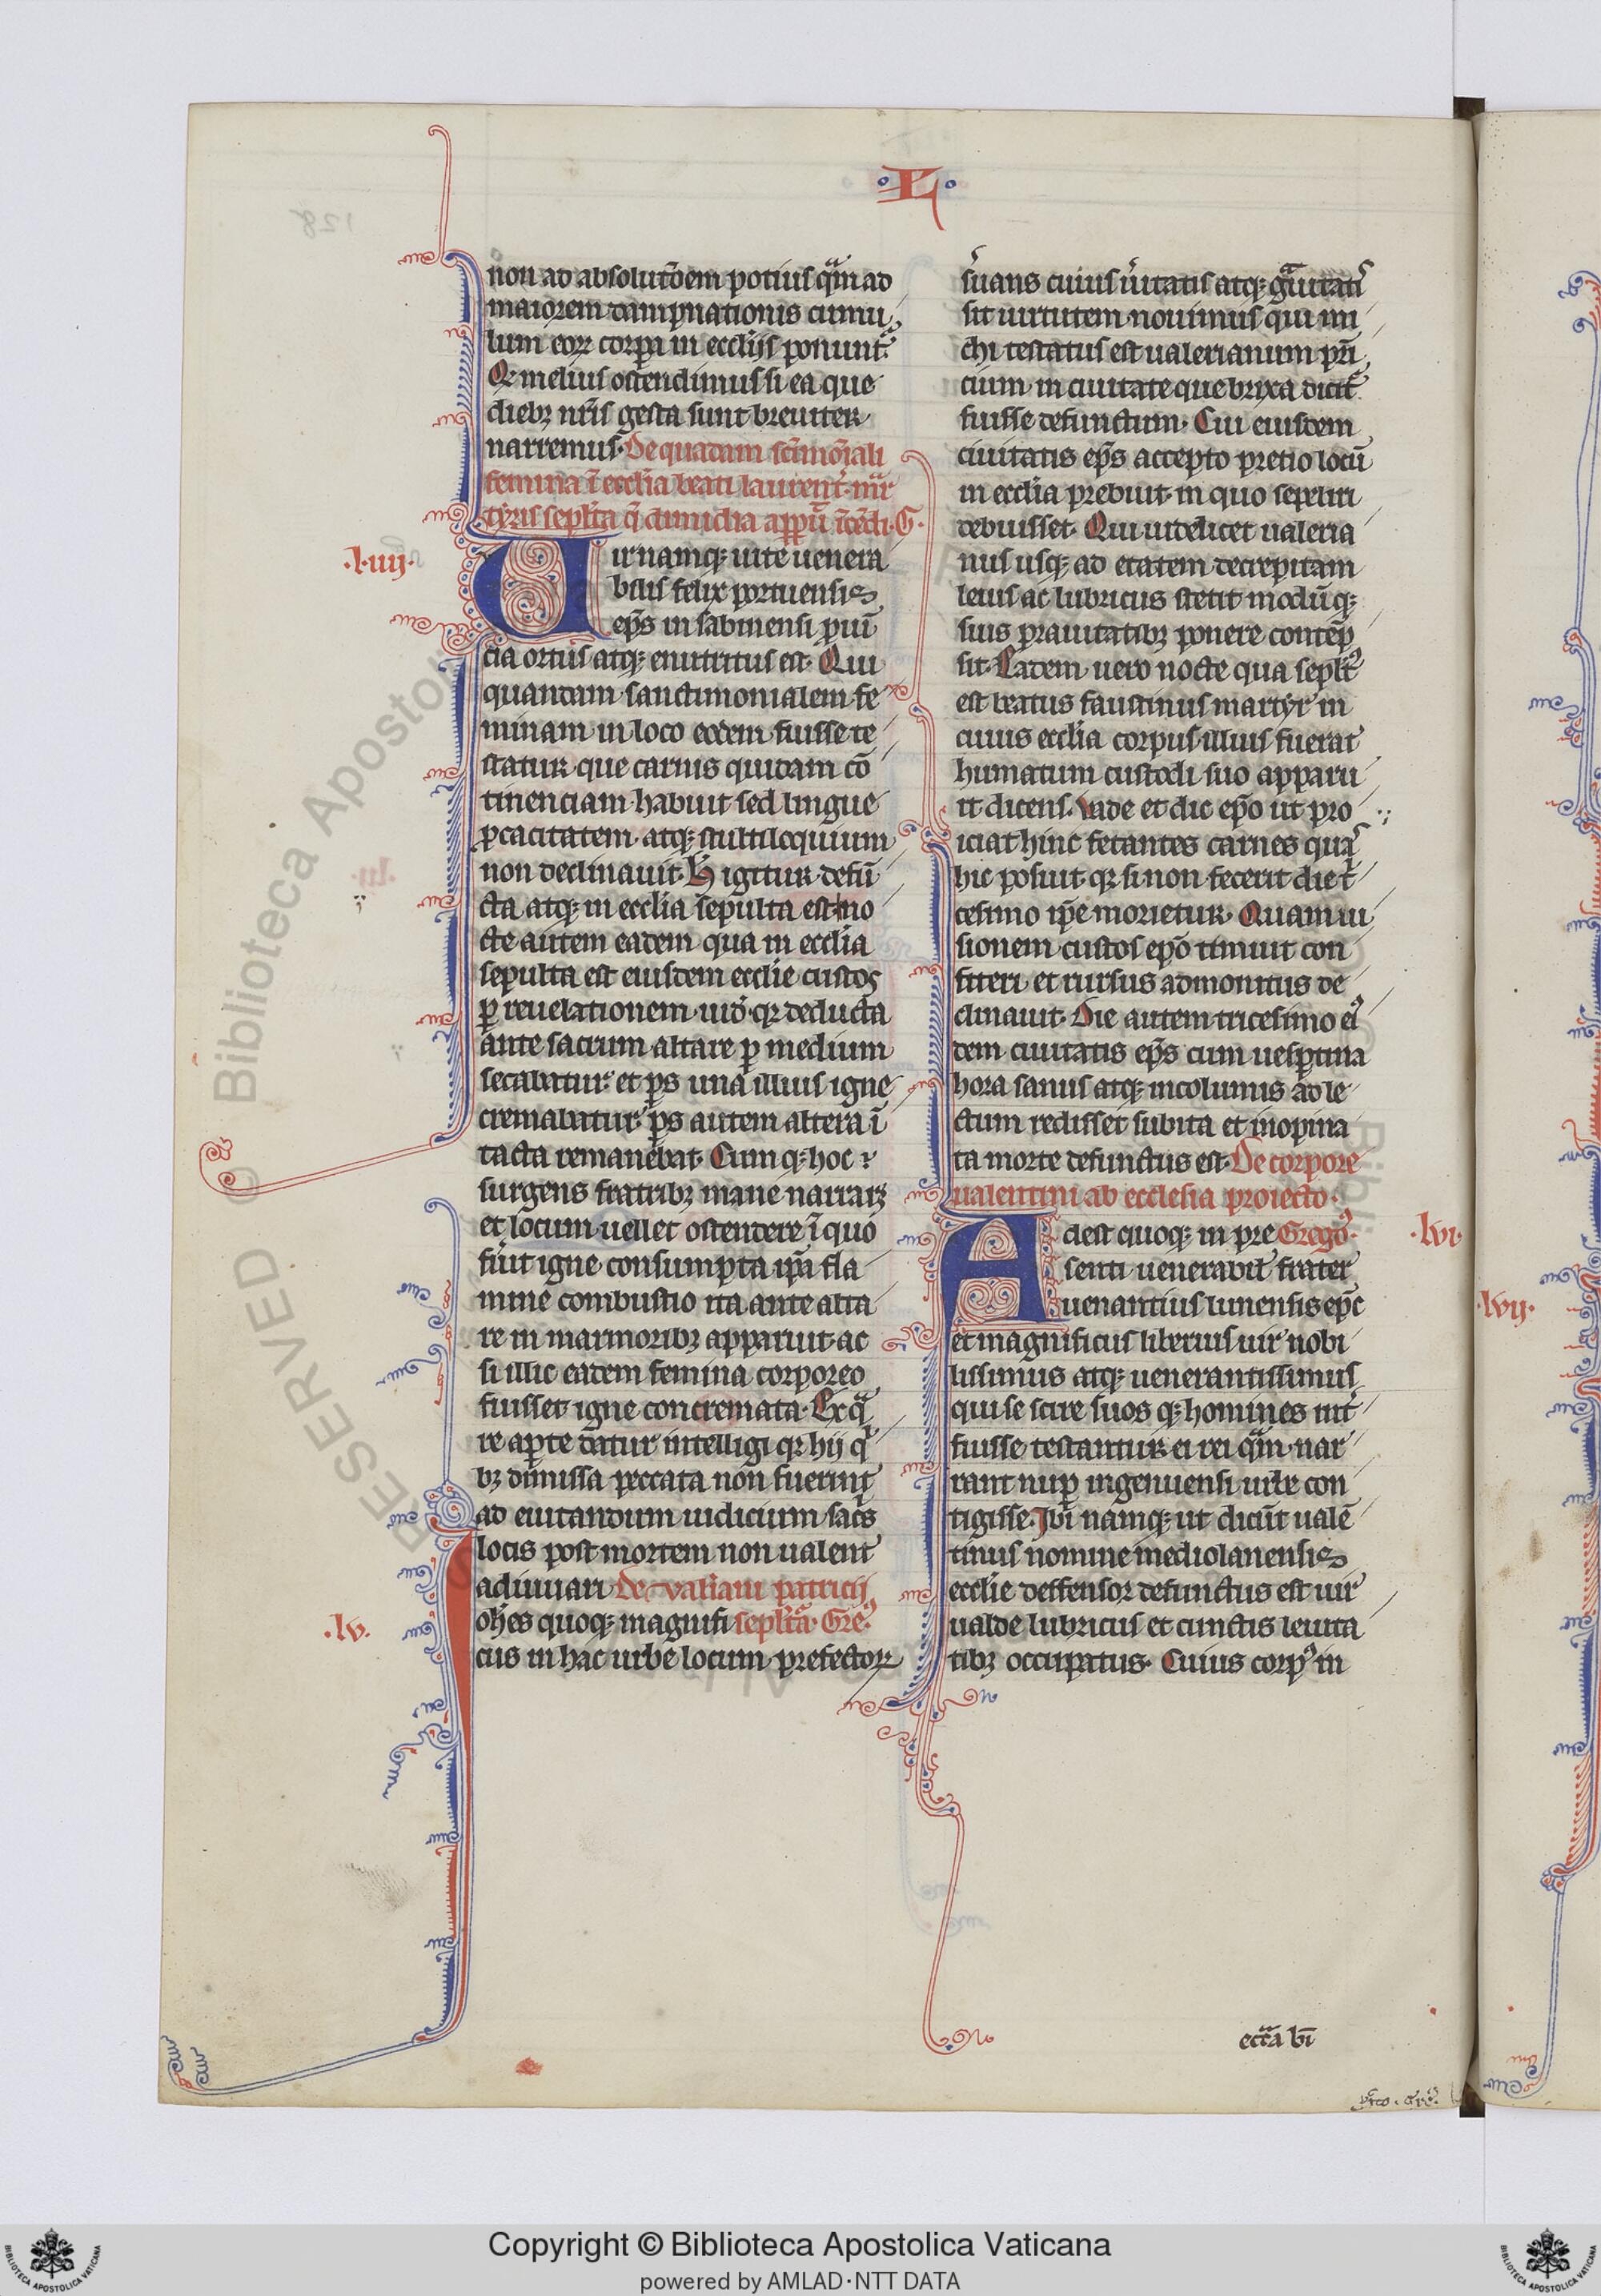 ·L·
non ad absolutõem potius q̃m ad
maiorem dampnationis cumu
lum eoꝝ corpa in ecclijs ponunt᷑.
Qꝛ melius ostendimus si ea que
diebꝫ nr̃is gesta sunt breuiter
narremus. De quadam sc̃imoĩali
femina ĩ ecclia beati laurent̾ mr̃
tyris seplta q̃ dimidia
·l·iiij·
Uir namqꝫ uite uenera
bilis felix portuensis
ep̃s in sabinensi ꝓuĩ
cia ortus atqꝫ enutritus est. Qui
quandam sanctimonialem fe
minam in loco eodem fuisse te
statur que carnis quidam cõ
tinenciam habuit sed lingue
ꝓcacitatem atqꝫ stultiloquium
non declinauit. H̾ igitur defũ
cta atqꝫ in ecclia sepulta est no
cte autem eadem qua in ecclia
sepulta est eiusdem ecclie custos
ꝑ reuelationem uid̾ qꝛ deducta
ante sacrum altare ꝑ medium
secabatur et ꝑs una illius igne
cremabatur ꝑs autem altera ĩ
tacta remanebat. Cumqꝫ hoc
surgens fratribꝫ mane narrarꝫ
et locum uellet ostendere ĩ quo
fu̾it igne consumpta ip̃a fla
mme combustio ita ante alta
re in marmoribꝫ apparuit ac
si illic eadem femina corporeo
fuisset igne concremata. Ex q̃
re aꝑte datur intelligi qꝛ hij qͥ
bꝫ dimissa peccata non fuerint
ad euitandum iudicium sac̾s
locis post mortem non ualent
adiuuari De valiani patricij
·lv·
Ioh̃es quoqꝫ magnifi sepltãa Gre᷒.
cus in hac urbe locum prefectoꝝ
s̾uans cuius u̾itatis atqꝫ gᷓuitatͥs
sit uirtutem nouimus qui mi
chi testatus est ualerianum pr̃i
cium in ciuitate que brixa dicit᷑
fuisse defunctum. Cui eiusdem
ciuitatis ep̃s accepto pretio locũ
in ecclia prebuit in quo sepeliri
debuisset. Qui uidelicet ualeria
nus usqꝫ ad etatem decrepitam
leuis ac lubricus stetit modũqꝫ
suis prauitatibꝫ ponere contẽp
sit. Eadem uero nocte qua seplt᷒
est beatus faustinus martyr in
cuius ecclia corpus illius fuerat
humatum custodi suo apparu
it dicens. Vade et dic ep̃o ut pro
iciat hinc fetantes carnes quas
hic posuit qꝛ si non fecerit die tͥ
cesimo ip̃e morietur. Quam ui
sionem custos ep̃o timuit con
fiteri et rursus admonitus de
clinauit. Die autem tricesimo ei᷒
dem ciuitatis ep̃s cum uesꝑtina
hora sanus atqꝫ incolumis ad le
ctum redisset subita et inopina
ta morte defunctus est. De corpore
ualentini ab ecclesia proiecto.
·lvi·
Adest quoqꝫ in pre Grego᷒.
senti uenerabil̾ frater
uenantius lunensis ep̃c
et magnificus liberius uir nobi
lissimus atqꝫ uenerantissimus
qui se scire suos qꝫ homines int̾
fuisse testantur ei rei q̃m nar
rant nuꝑ in genuensi urbe con
tigisse. Ibi namqꝫ ut dicũt ualẽ
tinus nomine mediolanensis
ecclie deffensor defunctus est uir
ualde lubricus et cunctis leuita
tibꝫ occupatus. Cuius corp᷒ in
·lvij·
RESERVED © Biblioteca Apostol
Copyright © Biblioteca Apostolica Vaticana
powered by AMLAD·NTT DATA
BIBLIOTECA APOSTOLICA VATICANA
BIBLIOTECA APOSTOLICA VATICANA